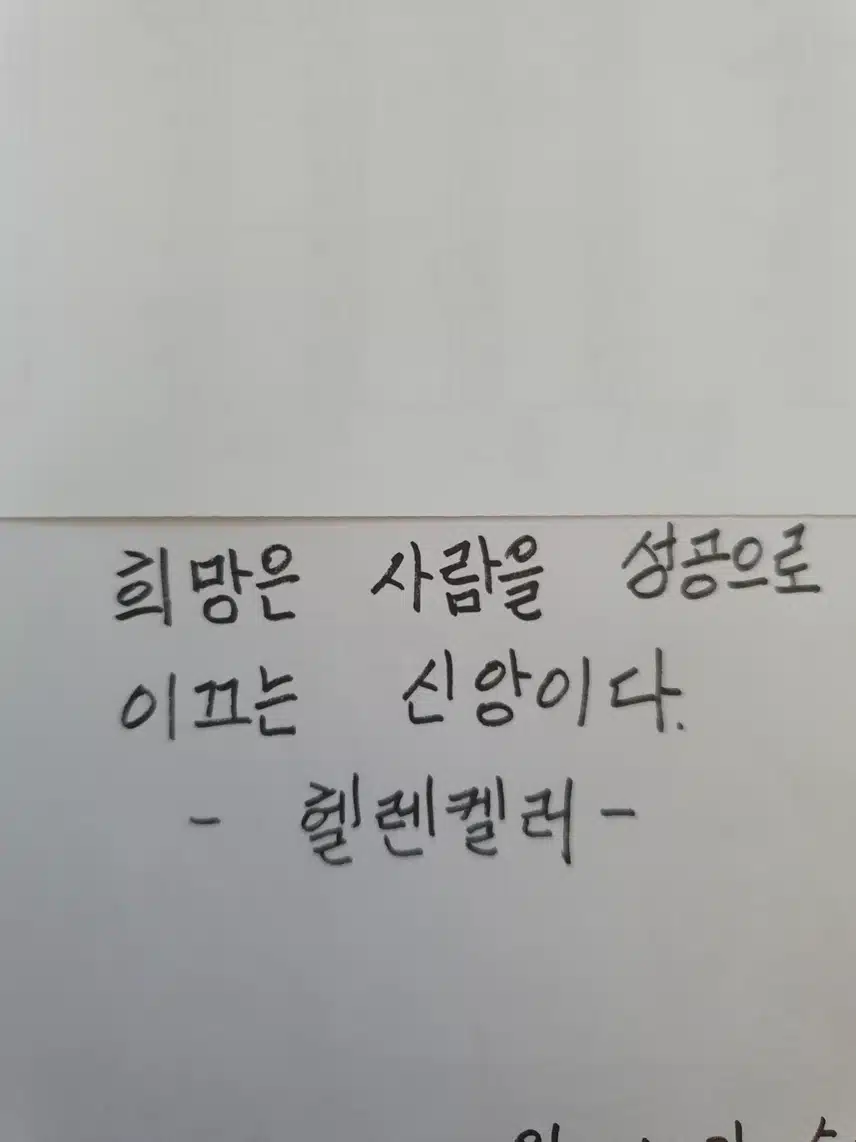 희망은 사람을 성공으로
이끄는 신앙이다.
- 헬렌켈러 -